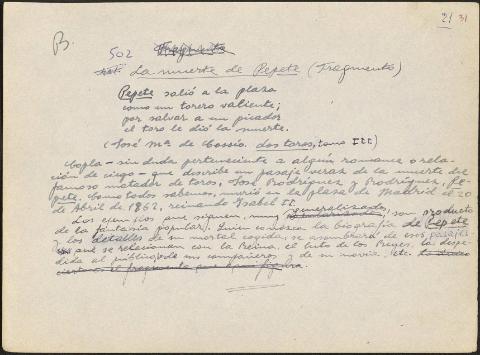 21 31
B.
502 Fragmento
La muerte de Pepete (Fragmento)
Pepete salió a la plaza
como un torero valiente;
por salvar a un picador
el toro le dió la muerte.
(José Mª de Cossío. Los toros, tomo III)
Copla - sin duda perteneciente a algún romance o rela-
ción de ciego - que describe un pasaje veraz de la muerte del
famoso matador de toros, José Rodríguez y Rodríguez, Pe-
pete. Como todos sabemos, murió en la plaza de Madrid el 20
de Abril de 1862, reinando Isabel II.
Los ejemplos que siguen, muy generalizados, son producto
de la fantasía popular. Quien conozca la biografía de Pepete
y los detalles de su mortal cogida, se asombrará de esos pasajes
que se relacionan con la Reina, el luto de los Reyes, la despe-
dida al público, de sus compañeros y de su novia, etc.